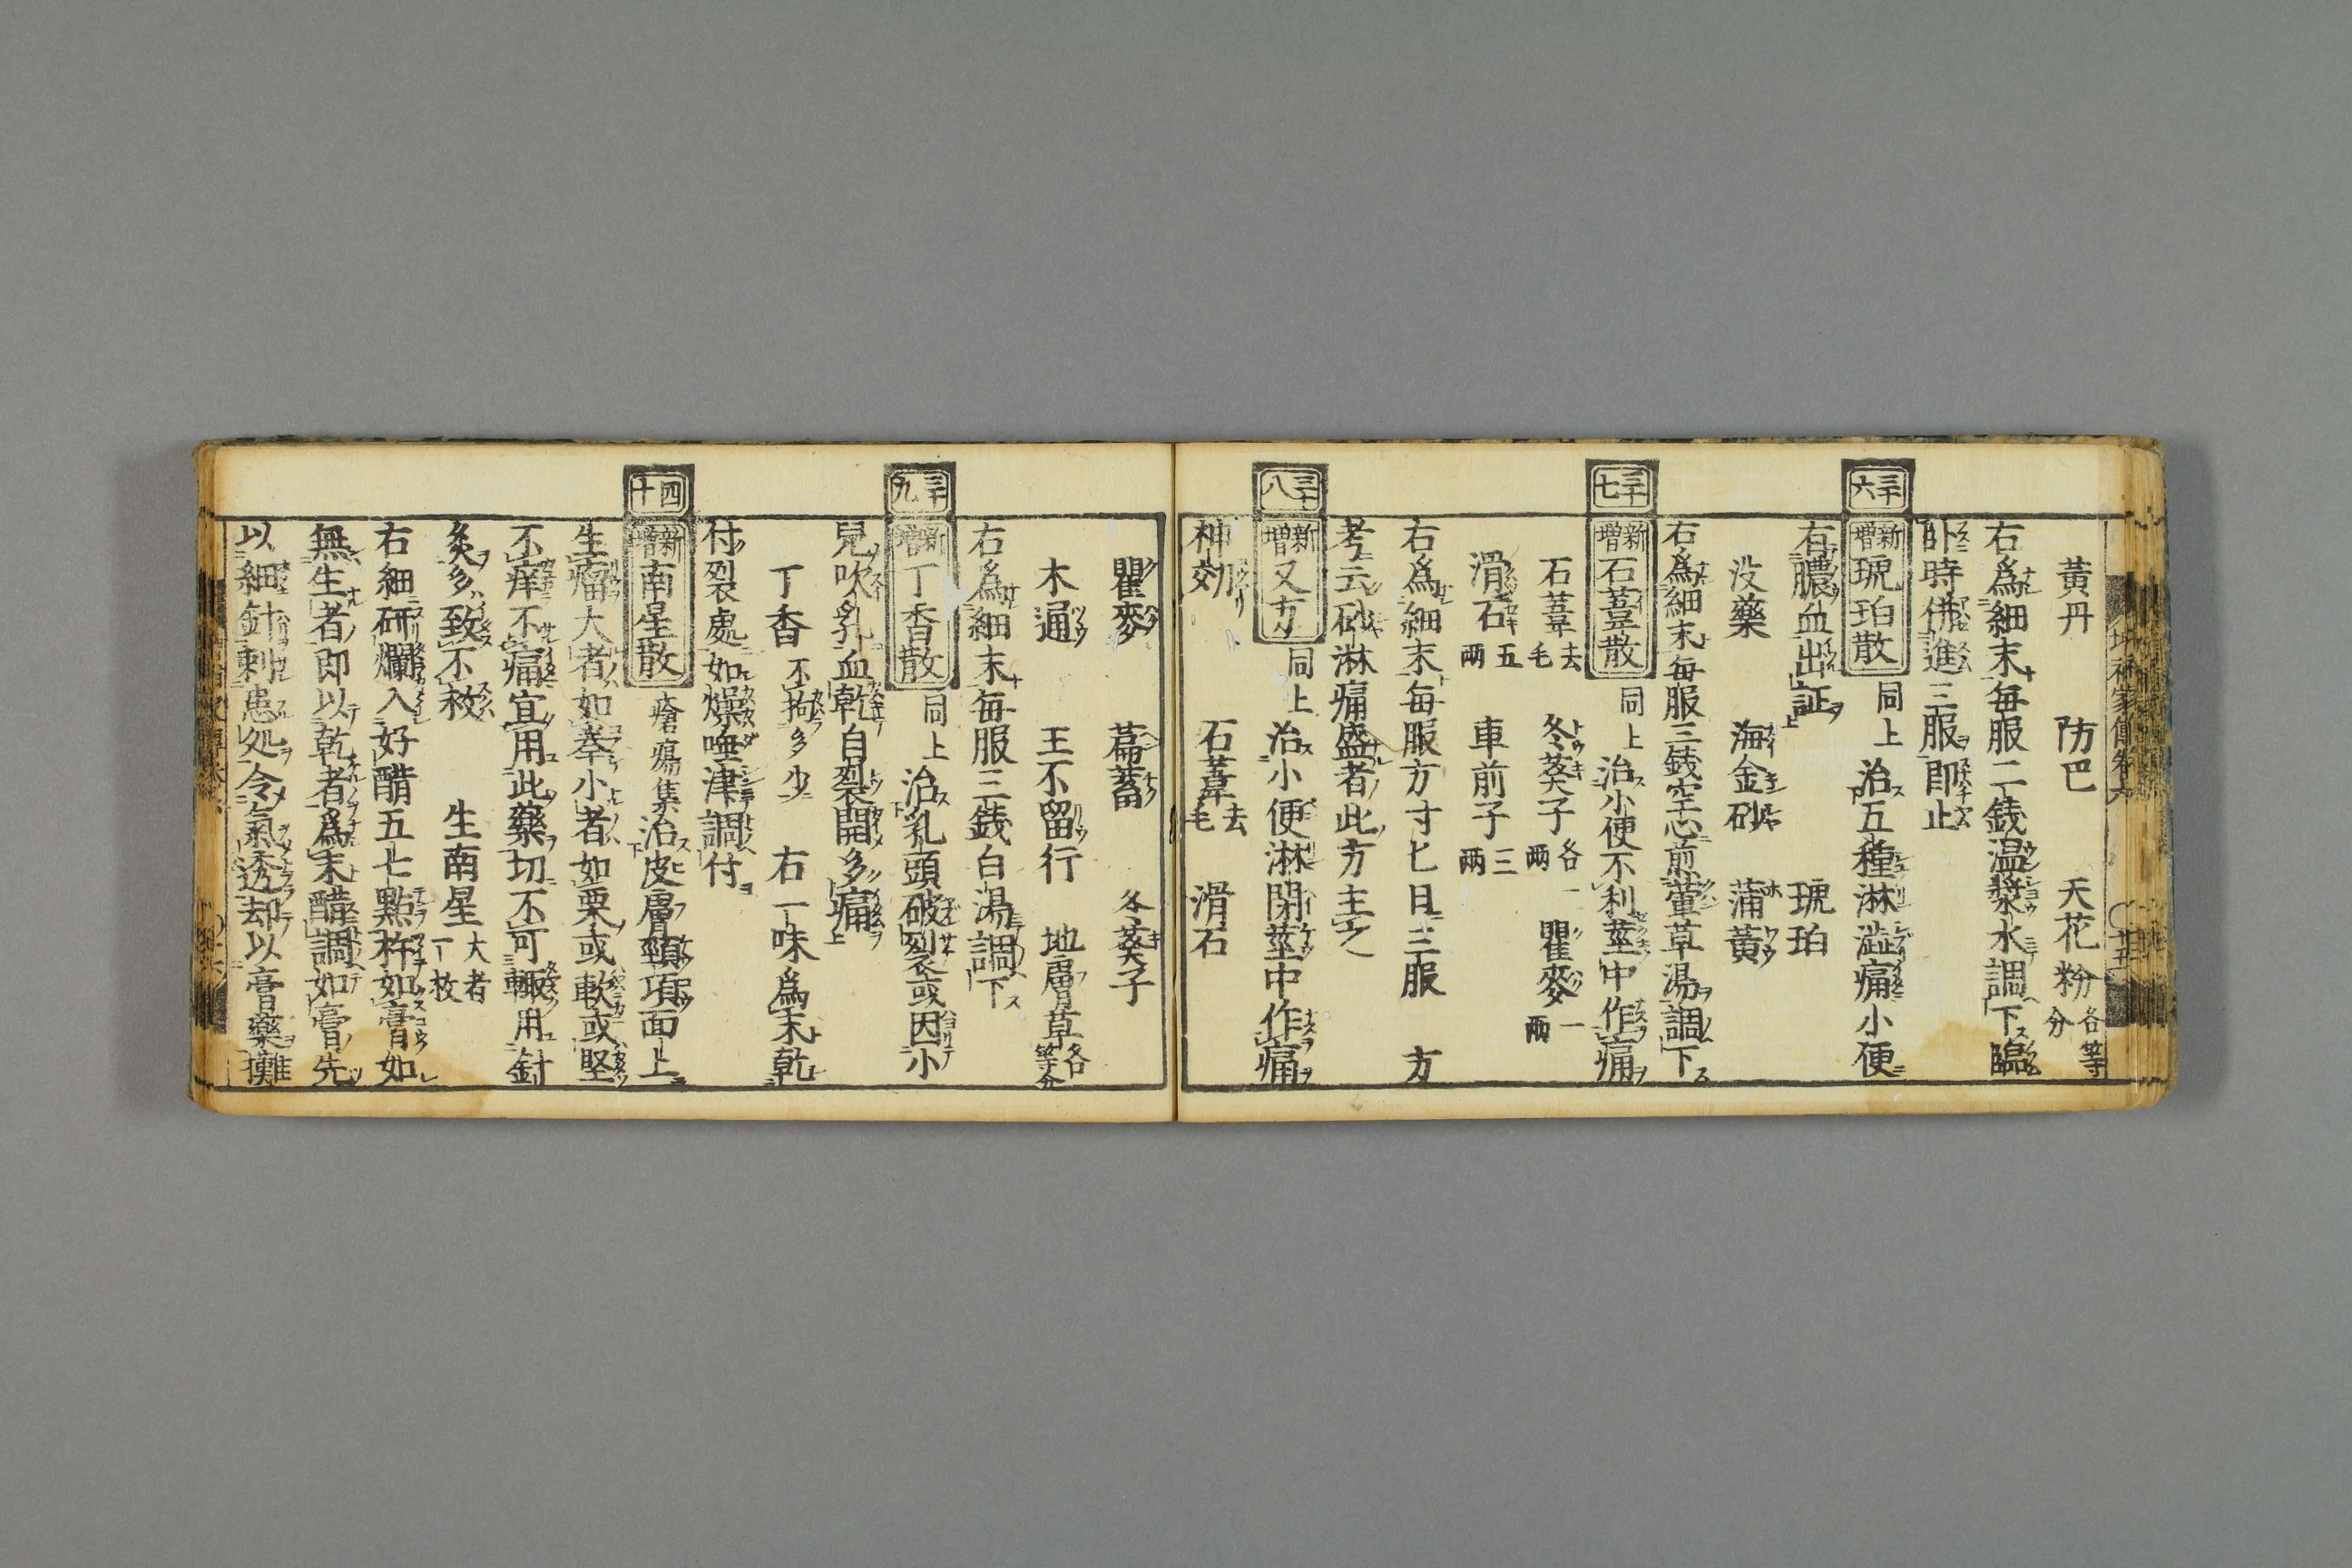 黃丹　防巴　天花粉各等分
右爲細末每服二錢温漿水調下臨
卧時併進三服即止
三十六
新增琥珀散　同上　治五種淋澁痛小便
右膿血出証　琥珀
没藥　海金砂　蒲黃
右爲細末每服三錢空心煎萱草湯調下
三十七
新增石葦散　同上　治小便不利莖中作痛
石葦去毛　冬葵子各一兩　瞿麥一兩
滑石五兩　車前子三兩
右爲細末每服方寸匕日三服　方
考云砂淋痛盛者此方主之
三十八
新增又方　同上　治小便淋閉莖中作痛
神効　石葦去毛　滑石
瞿麥　萹蓄　冬葵子
木通　王不留行　地膚草各等分
右爲細末每服三錢白湯調下
三十九
新增丁香散　同上　治乳頭破裂或因小
兒吹乳血乾自裂開多痛
丁香不拘多少　右一味爲末乾
付裂處如燥唾津調付
四十
新增南星散　瘡瘍集　治皮膚頸項面上
生瘤大者如拳小者如栗或軟或堅
不痒不痛宜用此藥切不可輙用針
灸多致不救　生南星大者一枚
右細研爛入好醋五七點杵如膏如
無生者即以乾者爲末醋調如膏先
以細針刺患処令氣透却以膏藥攤